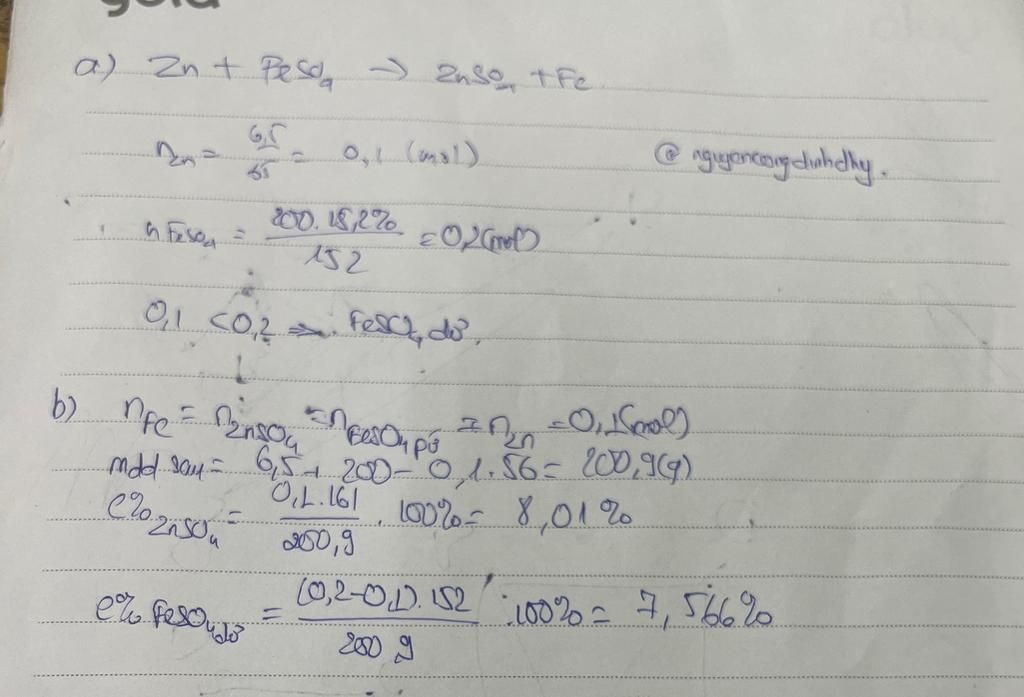 yola
a) Zn + FeSO₄ → ZnSO₄ + Fe
nZn = 6,5/65 = 0,1 (mol)
@ nguyencongdinhdhy.
nFeSO₄ = 200.15,2%/152 = 0,2(mol)
0,1 < 0,2 → FeSO₄ dư.
b) nFe = nZnSO₄ = nFeSO₄pứ = nZn = 0,1(mol)
mdd sau = 6,5 + 200 - 0,1.56 = 200,9(g)
C%ZnSO₄ = 0,1.161/200,9 . 100% = 8,01%
C% FeSO₄dư = (0,2-0,1).152/200,9 .100% = 7,566%